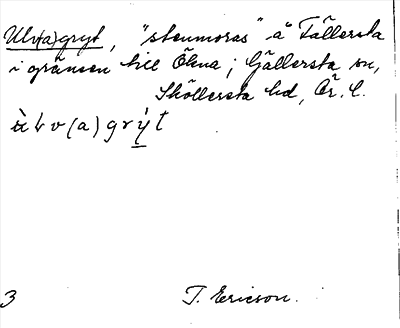 Ulv(a)gryt, "stenmoras" å Tällersta
i gränsen till Ölena; Gällersta sn,
Sköllersta hd, Ör. l.
ù L v (a) g r ý t
3 T. Ericson.